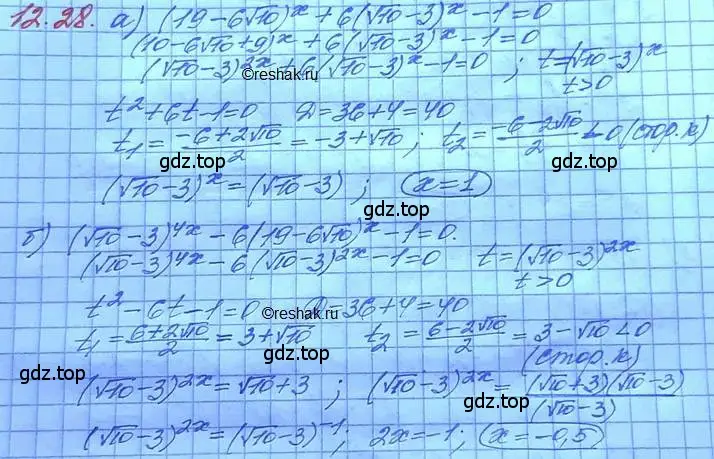 12.28. а) (19-6√10)ˣ + 6(√10-3)ˣ - 1 = 0
(10-6√10+9)ˣ + 6(√10-3)ˣ - 1 = 0
(√10-3)²ˣ + 6(√10-3)ˣ - 1 = 0 ; t=(√10-3)ˣ
©reshak.ru
t>0
t²+6t-1=0 D=36+4=40
t₁ = (-6+2√10)/2 = -3+√10 ; t₂ = (-6-2√10)/2 < 0 (стор.к)
gdz.top gdz.top
(√10-3)ˣ = (√10-3) ; x=1
gdz.top
б) (√10-3)⁴ˣ - 6(19-6√10)ˣ - 1 = 0.
(√10-3)⁴ˣ - 6(√10-3)²ˣ - 1 = 0 t=(√10-3)²ˣ
gdz.top gdz.top
t>0
t²-6t-1=0 D=36+4=40
©reshak.ru
t₁ = (6+2√10)/2 = 3+√10 t₂ = (6-2√10)/2 = 3-√10 < 0
gdz.top
(стор.к)
(√10-3)²ˣ = √10+3 ; (√10-3)²ˣ = (√10+3)(√10-3)/(√10-3)
gdz.top gdz.top
(√10-3)²ˣ = (√10-3)⁻¹ ; 2x=-1 ; x=-0,5